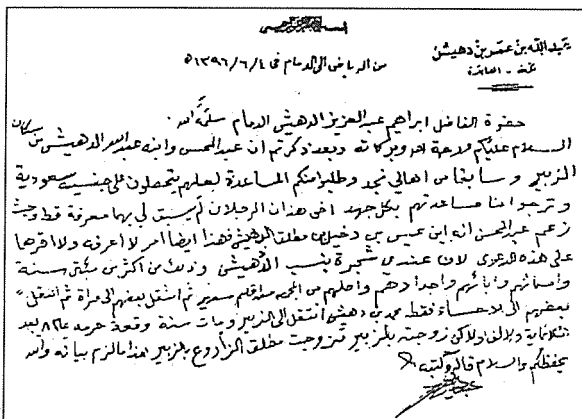 عبدالله بن عمر بن دهيش
مكة - العابدية
من الرياض الى الدمام في ١٣٩٦/٦/٤هـ
حضرة الفاضل ابراهيم عبدالعزيز الدهيش الدمام سلمه الله .
السلام عليكم ورحمة الله وبركاته وبعد ذكرتم ان عبدالمحسن وابنه عبدالله الدهيش من سكان
الزبير وسابقا من اهالي نجد وطلبوا منكم المساعدة لعلهم يتحصلون على جنسية سعودية
وترجوا منا مساعدتهم بكل جهد اخي هذان الرجلان لم يسبق لي بهما معرفة قط وحيث
زعم عبدالمحسن انه ابن عيسى بن دخيل بن مطلق الدهيش فهذا ايضا امر لا اعرفه ولا اقرها
على هذه الدعوى لان عندي شجرة بنسب الدهيش وذلك من اكثر من مئتي سنة
واسمائهم وابائهم واجدادهم واصلهم من المجمعة من اقليم سدير ثم انتقل بعضهم الى مراة ثم انتقل
بعضهم الى الاحساء فقط محمد بن دهيش انتقل الى الزبير ومات سنة وقعة حرمه
ولاكن زوجته بالزبير تزوجت مطلق الزارود بالزبير هذا ما لزم بيانه والله
يحفظكم والسلام قاله وكتبه